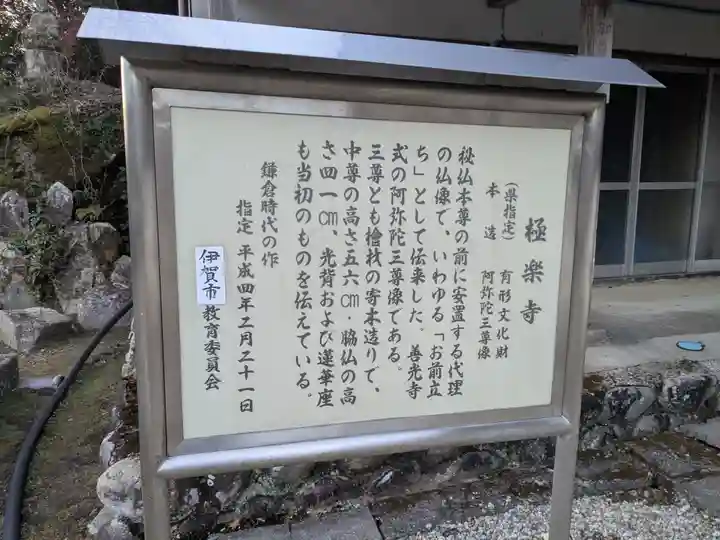 極楽寺
（県指定）　有形文化財
木造　阿弥陀三尊像
秘仏本尊の前に安置する代理
の仏像で、いわゆる「お前立
ち」として伝来した。善光寺
式の阿弥陀三尊像である。
三尊とも檜材の寄木造りで、
中尊の高さ五六㎝・脇仏の高
さ四一㎝、光背および蓮華座
も当初のものを伝えている。
鎌倉時代の作
指定　平成四年二月二十一日
伊賀市教育委員会